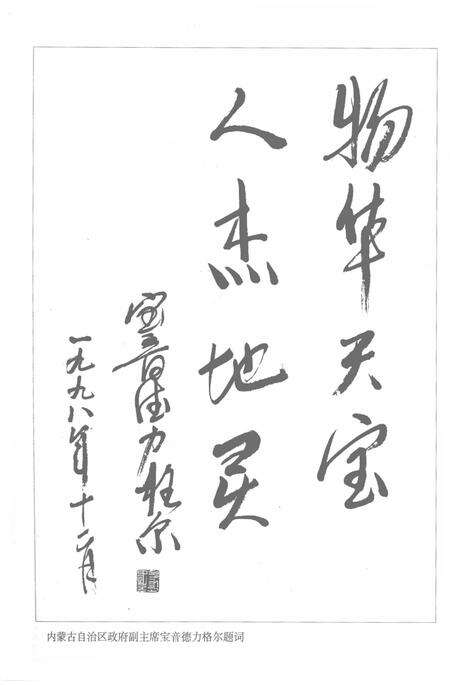 物华天宝
人杰地灵
宝音德力格尔
一九九八年十二月
内蒙古自治区政府副主席宝音德力格尔题词